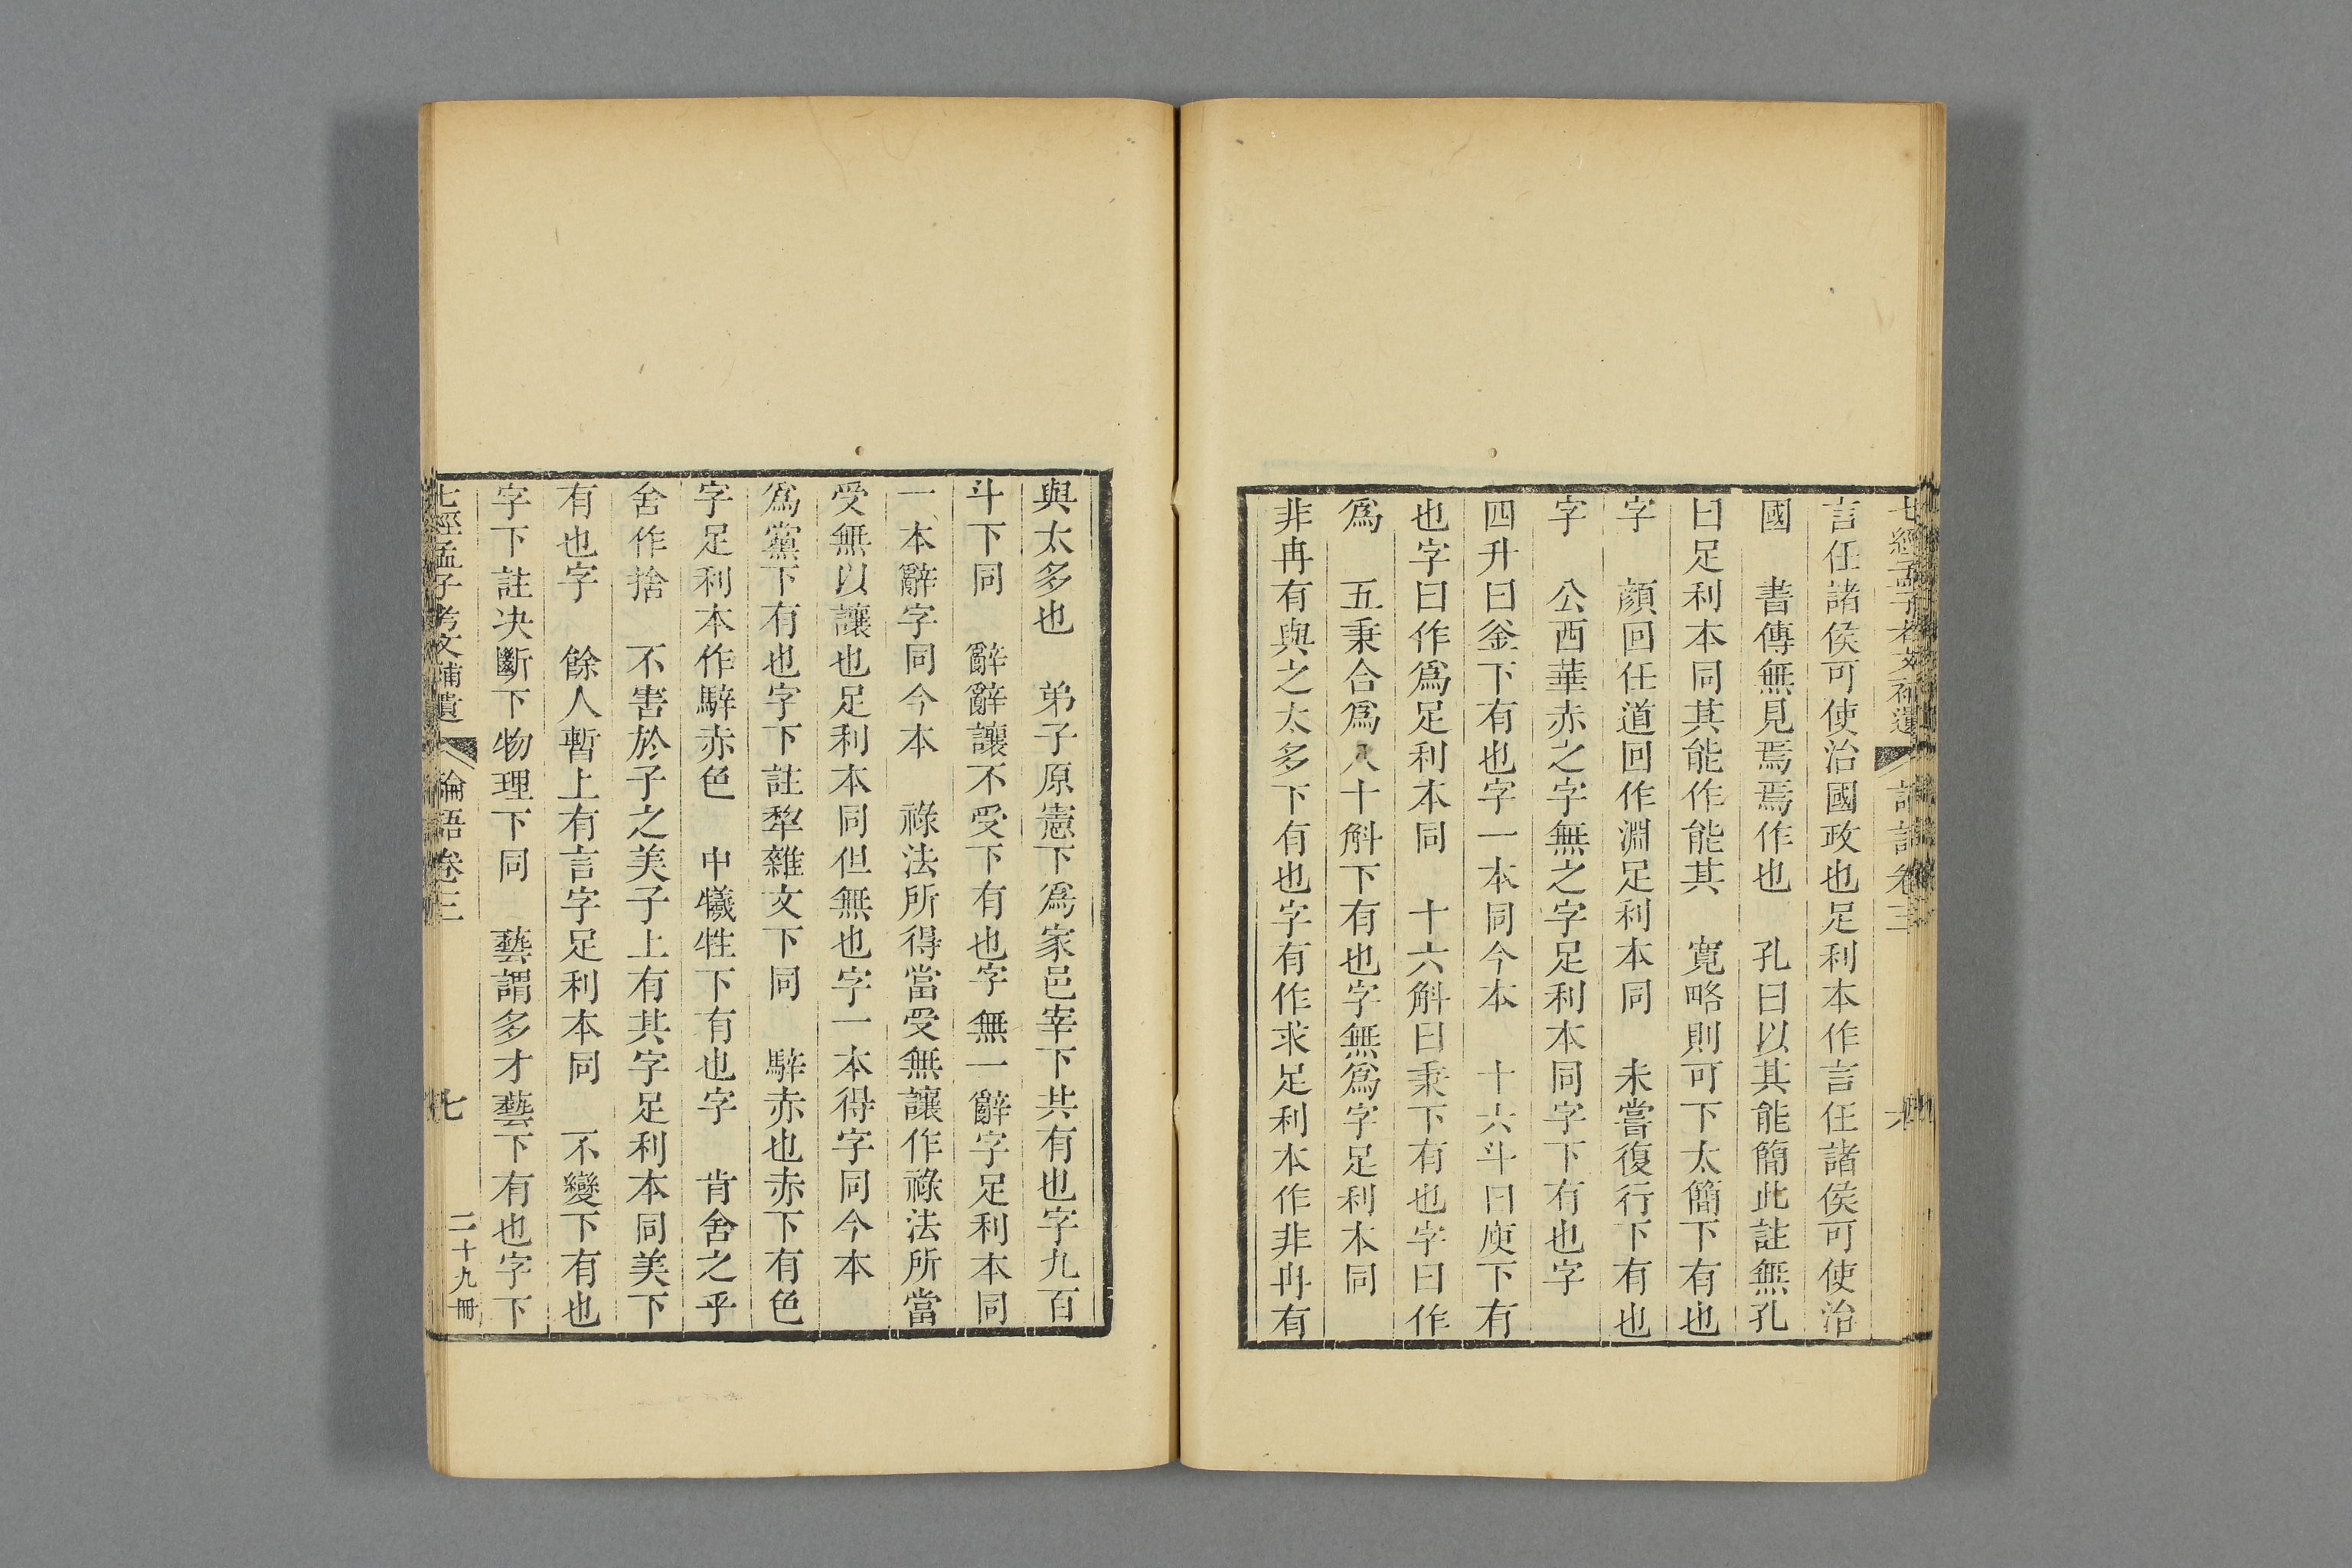 七經孟子考文補遺 論語卷三 六
言任諸侯可使治國政也足利本作言任諸侯可使治
國 書傳無見焉焉作也 孔曰以其能簡此註無孔
曰足利本同其能作能其 寬略則可下太簡下有也
字 顏回任道回作淵足利本同 未嘗復行下有也
字 公西華赤之字無之字足利本同字下有也字
四升曰釜下有也字一本同今本 十六斗曰庾下有
也字曰作爲足利本同 十六斛曰秉下有也字曰作
爲 五秉合爲八十斛下有也字無爲字足利本同
非冉有與之太多下有也字有作求足利本作非冉有
與太多也 弟子原憲下爲家邑宰下共有也字九百
斗下同 辭辭讓不受下有也字無一辭字足利本同
一本辭字同今本 祿法所得當受無讓作祿法所當
受無以讓也足利本同但無也字一本得字同今本
爲黨下有也字下註犂雜文下同 騂赤也赤下有色
字足利本作騂赤色 中犧牲下有也字 肯舍之乎
舍作捨 不害於子之美子上有其字足利本同美下
有也字 餘人暫上有言字足利本同 不變下有也
字下註决斷下物理下同 藝謂多才藝下有也字下
七經孟子考文補遺 論語卷三 七 二十九冊